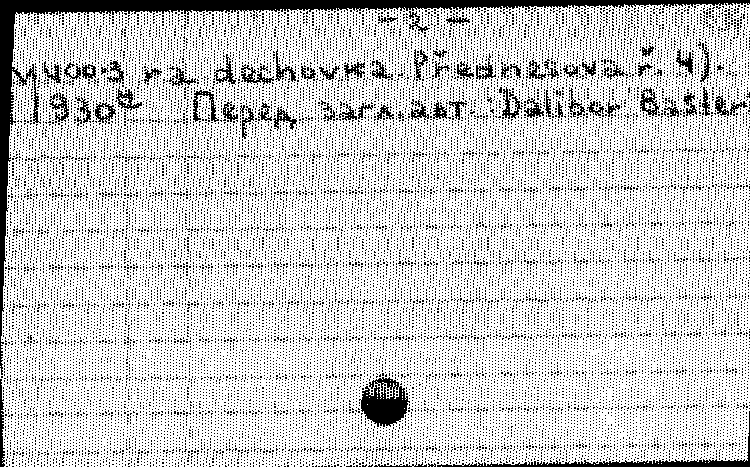 - 2 -
dechovka. Přednesová ř. 4).
1930 Перед загл. авт.: Dalibor Basler